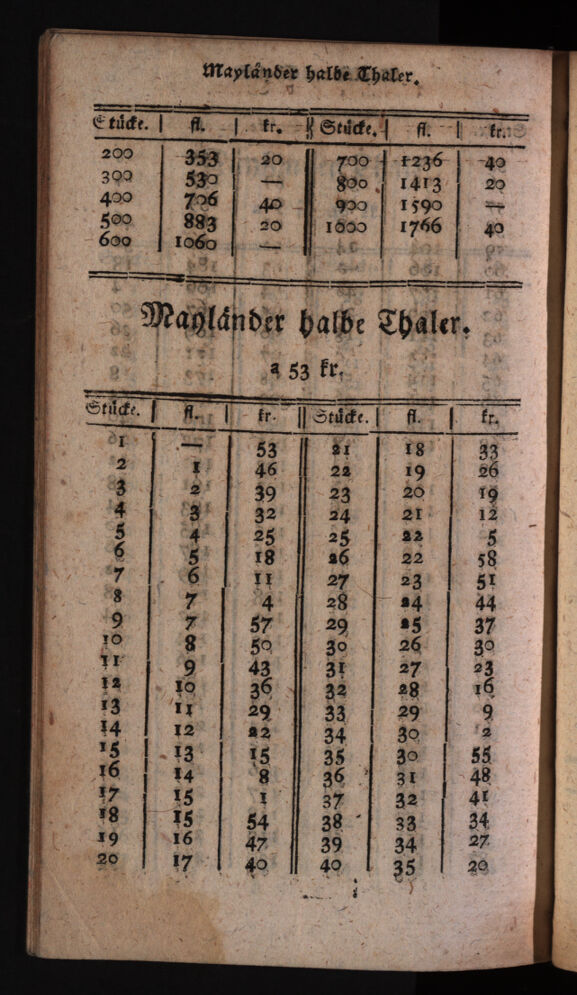 Mayländer halbe Thaler.
Stücke. | fl. | kr. || Stücke. | fl. | kr.
200 | 353 | 20 || 700 | 1236 | 40
300 | 530 | — || 800 | 1413 | 20
400 | 706 | 40 || 900 | 1590 | —
500 | 883 | 20 || 1000 | 1766 | 40
600 | 1060 | —
Mayländer halbe Thaler.
a 53 kr.
Stücke. | fl. | kr. || Stücke. | fl. | kr.
1 | — | 53 || 21 | 18 | 33
2 | 1 | 46 || 22 | 19 | 26
3 | 2 | 39 || 23 | 20 | 19
4 | 3 | 32 || 24 | 21 | 12
5 | 4 | 25 || 25 | 22 | 5
6 | 5 | 18 || 26 | 22 | 58
7 | 6 | 11 || 27 | 23 | 51
8 | 7 | 4 || 28 | 24 | 44
9 | 7 | 57 || 29 | 25 | 37
10 | 8 | 50 || 30 | 26 | 30
11 | 9 | 43 || 31 | 27 | 23
12 | 10 | 36 || 32 | 28 | 16
13 | 11 | 29 || 33 | 29 | 9
14 | 12 | 22 || 34 | 30 | 2
15 | 13 | 15 || 35 | 30 | 55
16 | 14 | 8 || 36 | 31 | 48
17 | 15 | 1 || 37 | 32 | 41
18 | 15 | 54 || 38 | 33 | 34
19 | 16 | 47 || 39 | 34 | 27
20 | 17 | 40 || 40 | 35 | 20